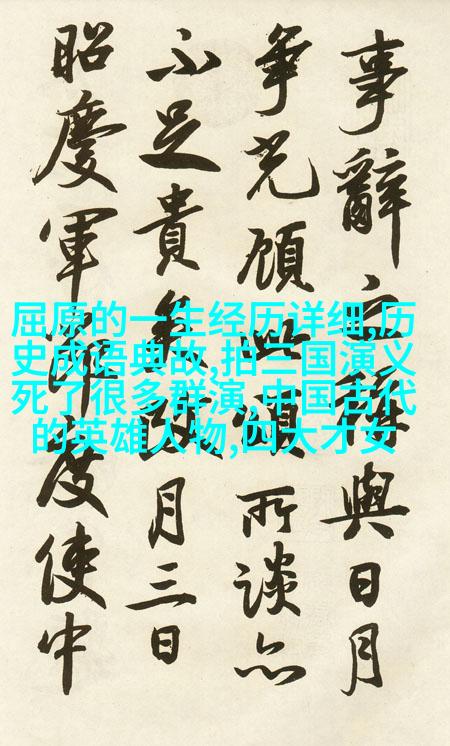 事辭與日月
争光顧此頌所談亦
不足貴月三日
昭慶軍節度使中
屈原的一生经历详细,历
史成语典故,拍三国演义
死了很多群演,中国古代
的英雄人物,四大才女